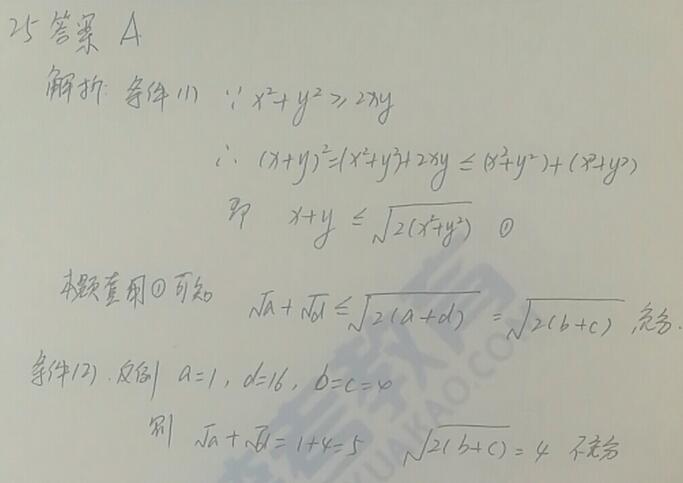 25 答案 A
解析: 条件(1) ∵ x²+y² ≥ 2xy
∴ (x+y)²=(x²+y²)+2xy ≤ (x²+y²)+(x²+y²)
即 x+y ≤ √2(x²+y²) ①
本题套用①可知 √a+√d ≤ √2(a+d) = √2(b+c) 充分.
条件(2). 反例 a=1, d=16, b=c=4
则 √a+√d=1+4=5 √2(b+c)=4 不充分
考教育
KUAIKAO.COM